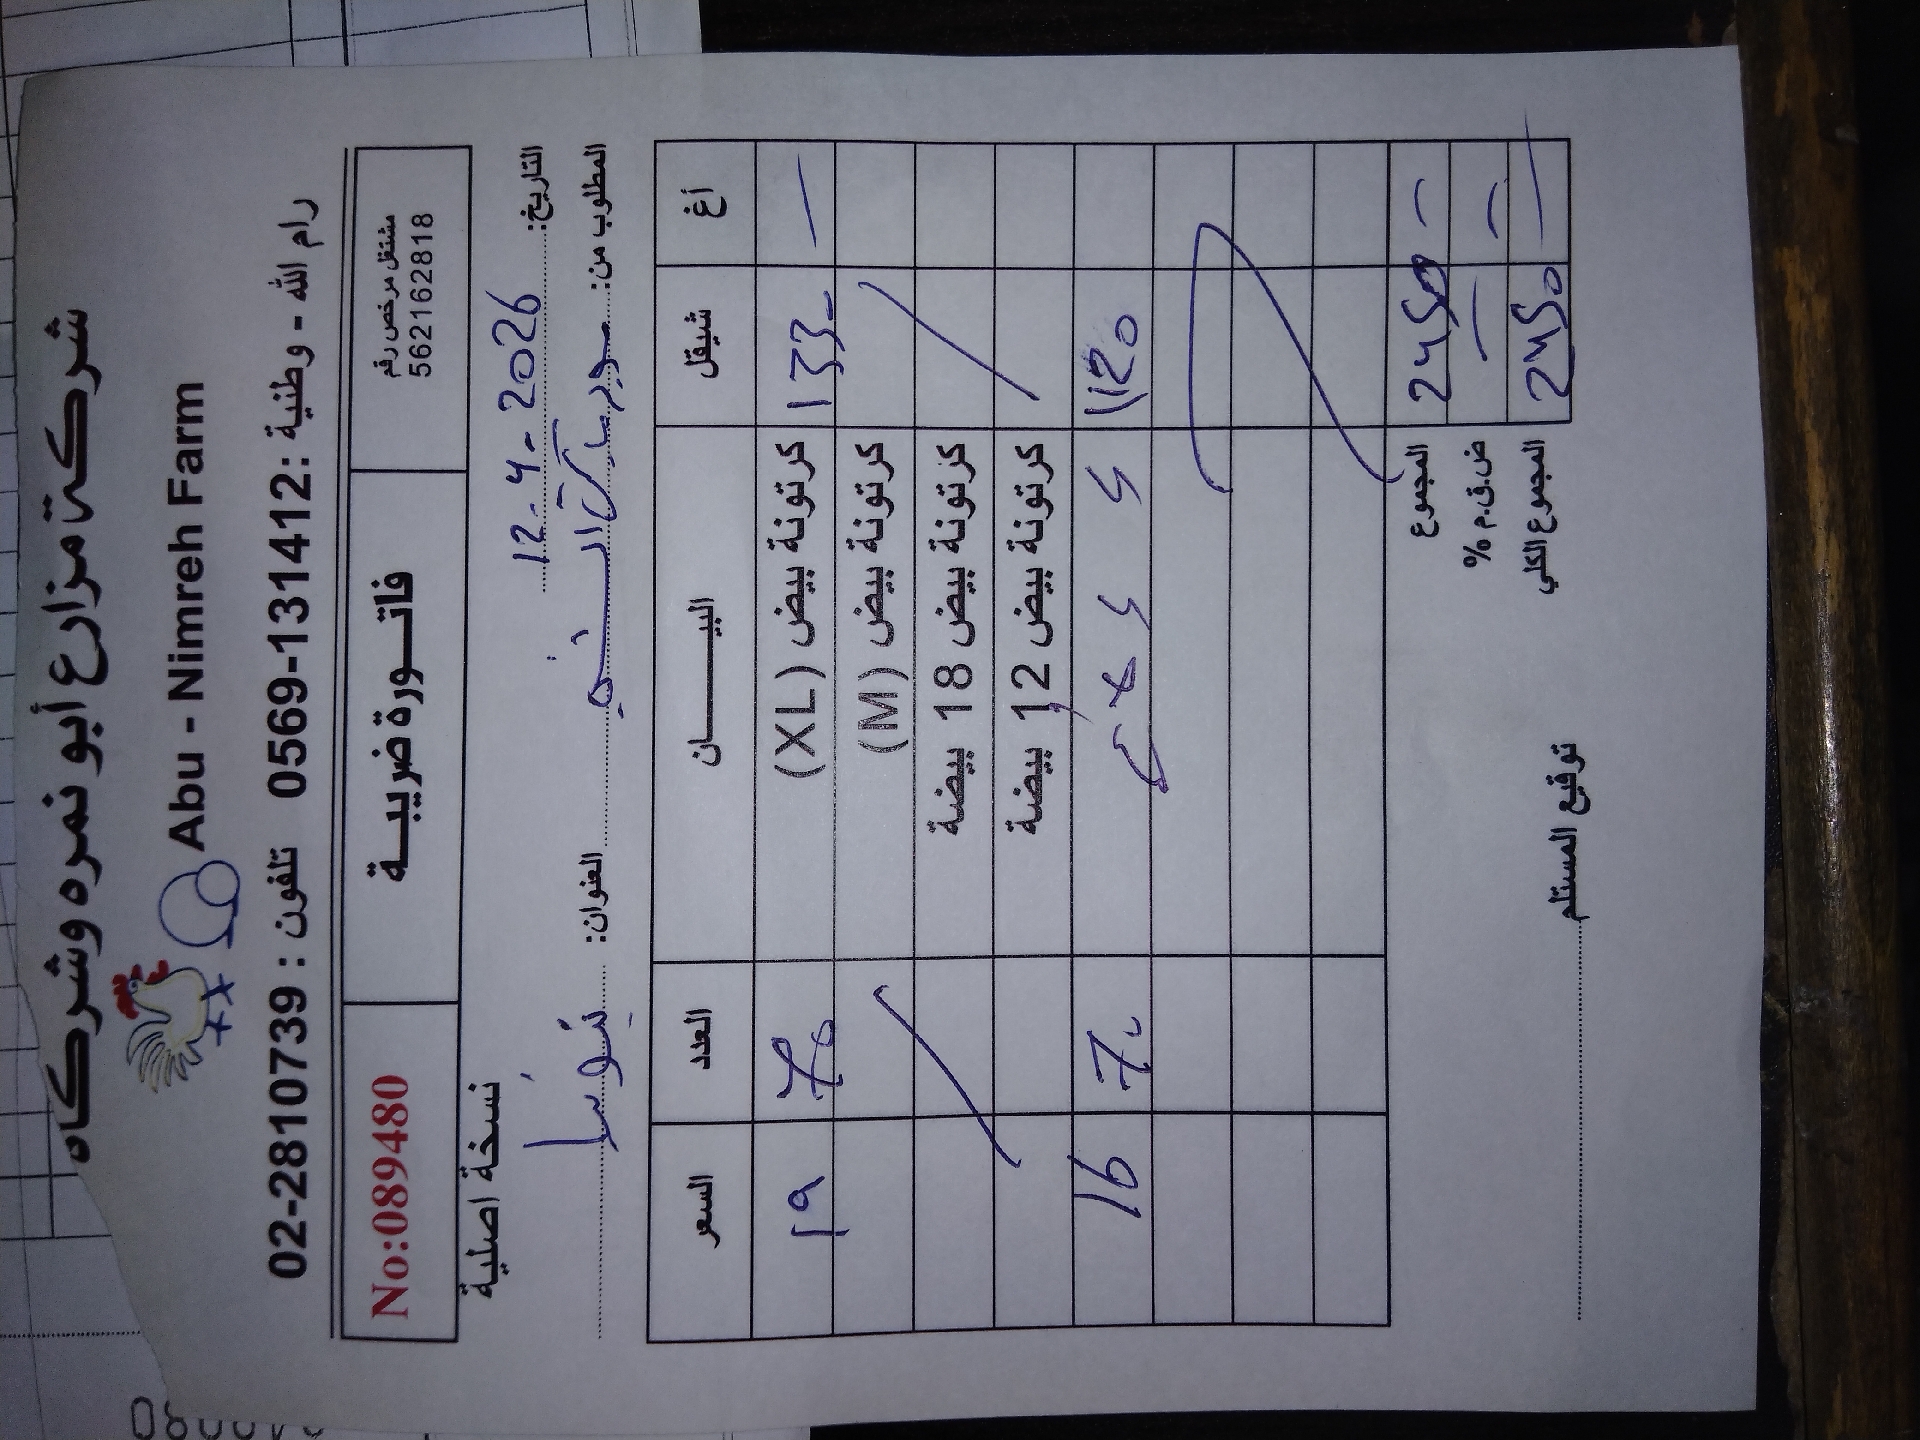 شركة مزارع أبو نمره وشركاه
Abu - Nimreh Farm
رام الله - وطنية : 0569-131412 تلفون : 02-2810739
مشتغل مرخص رقم
562162818
فاتـــورة ضريبـــة
No:089480
نسخة اصلية
التاريخ: 12-4-2026
المطلوب من: سوبر ماركت العنوان:
أغ شيقل البيــــــان العدد السعر
— 133- كرتونة بيض (XL) 70 19
كرتونة بيض (M)
كرتونة بيض 18 بيضة
كرتونة بيض 12 بيضة
1120 70 16
المجموع 2450 -
ض.ق.م % — -
المجموع الكلي 2450 —
توقيع المستلم